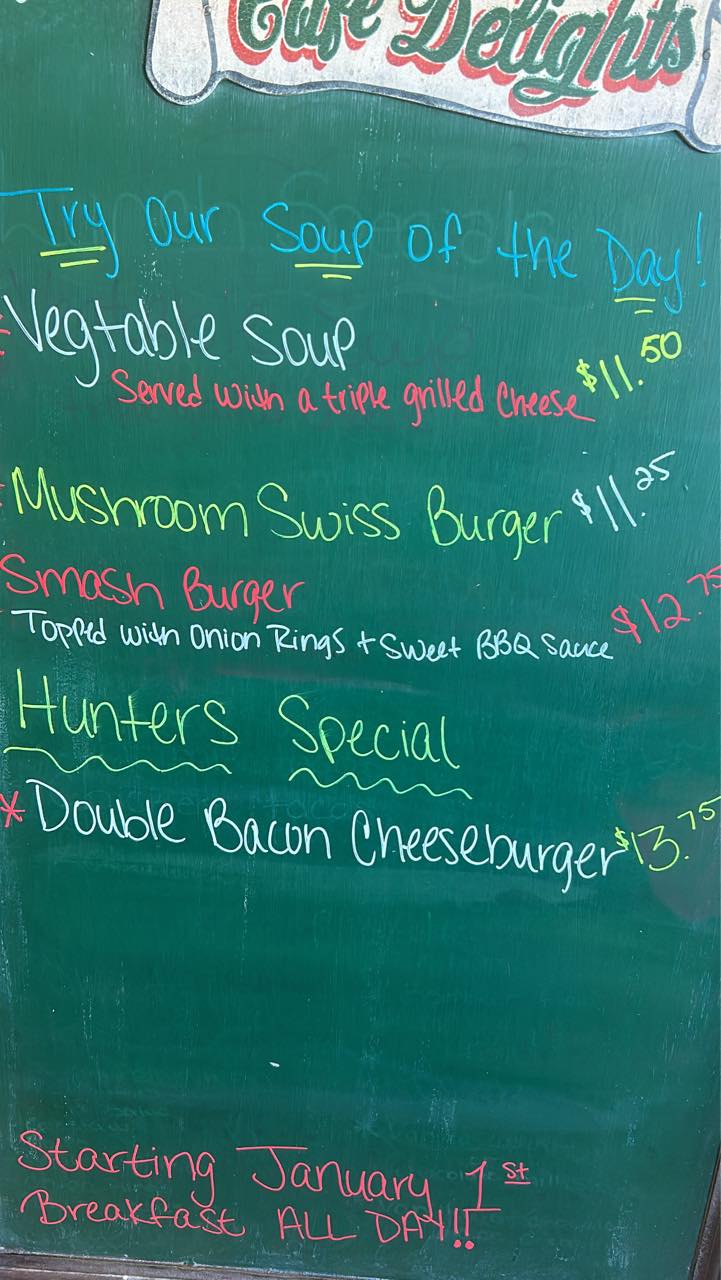 Cafe Delights
Try Our Soup of the Day!
Vegtable Soup
Served with a triple grilled Cheese $11.50
Mushroom Swiss Burger $11.25
Smash Burger
Topped with Onion Rings + Sweet BBQ Sauce $12.75
Hunters Special
* Double Bacon Cheeseburger $13.75
Starting January 1st
Breakfast ALL DAY!!